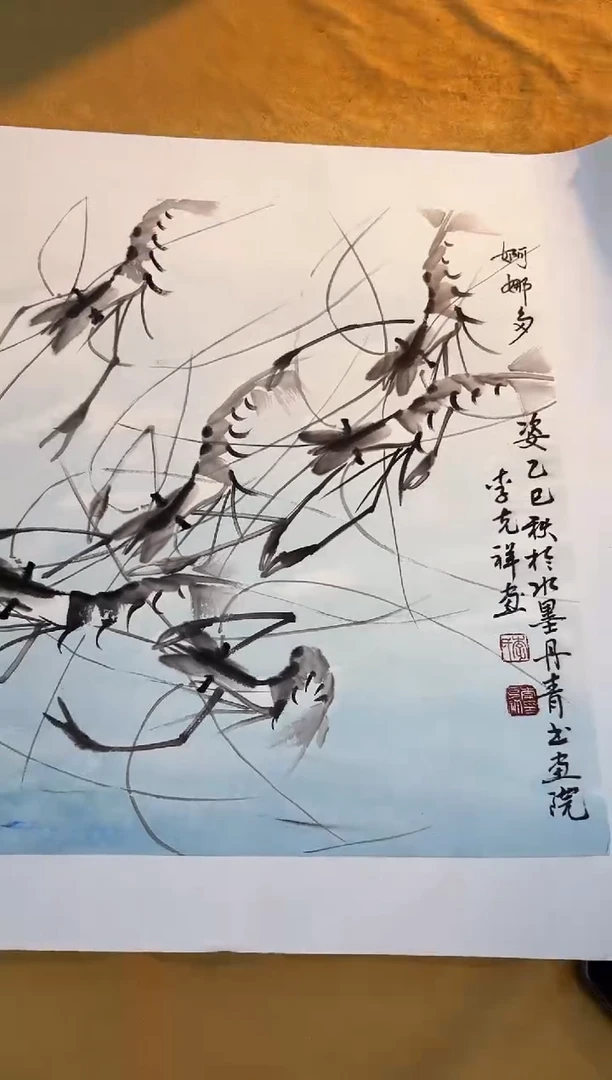 婀娜多
姿乙巳秋於水墨丹青书画院
李克祥画